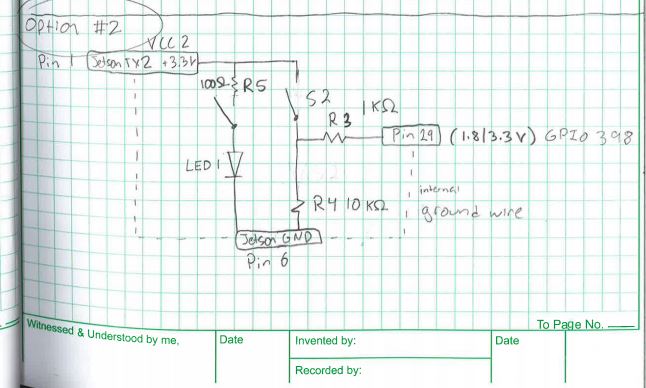 Option #2
VCC 2
Pin 1 Jetson TX2 +3.3V
100Ω R5
S2
1KΩ
R3
Pin 29 (1.8/3.3V) GPIO 398
LED1
internal
R4 10KΩ
ground wire
Jetson GND
Pin 6
To Page No.
Witnessed & Understood by me,
Date
Invented by:
Date
Recorded by: